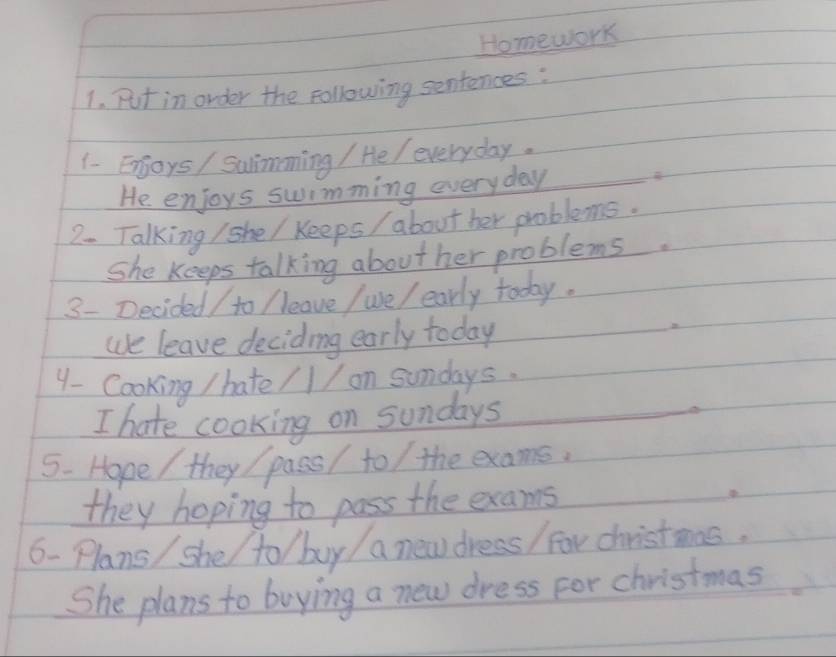 Homework
1. Put in order the Following sentences:
1- Enjoys/ Swimming/ He/ everyday.
He enjoys swimming everyday.
2- Talking/ she/ Keeps/ about her problems.
She Keeps talking about her problems.
3- Decided/ to/ leave/ we/ early today.
We leave deciding early today.
4- Cooking/ hate/ I/ on sundays.
I hate cooking on sundays.
5- Hope/ they/ pass/ to/ the exams.
they hoping to pass the exams.
6- Plans/ she/ to/ buy/ a new dress/ For christmas.
She plans to buying a new dress For christmas.